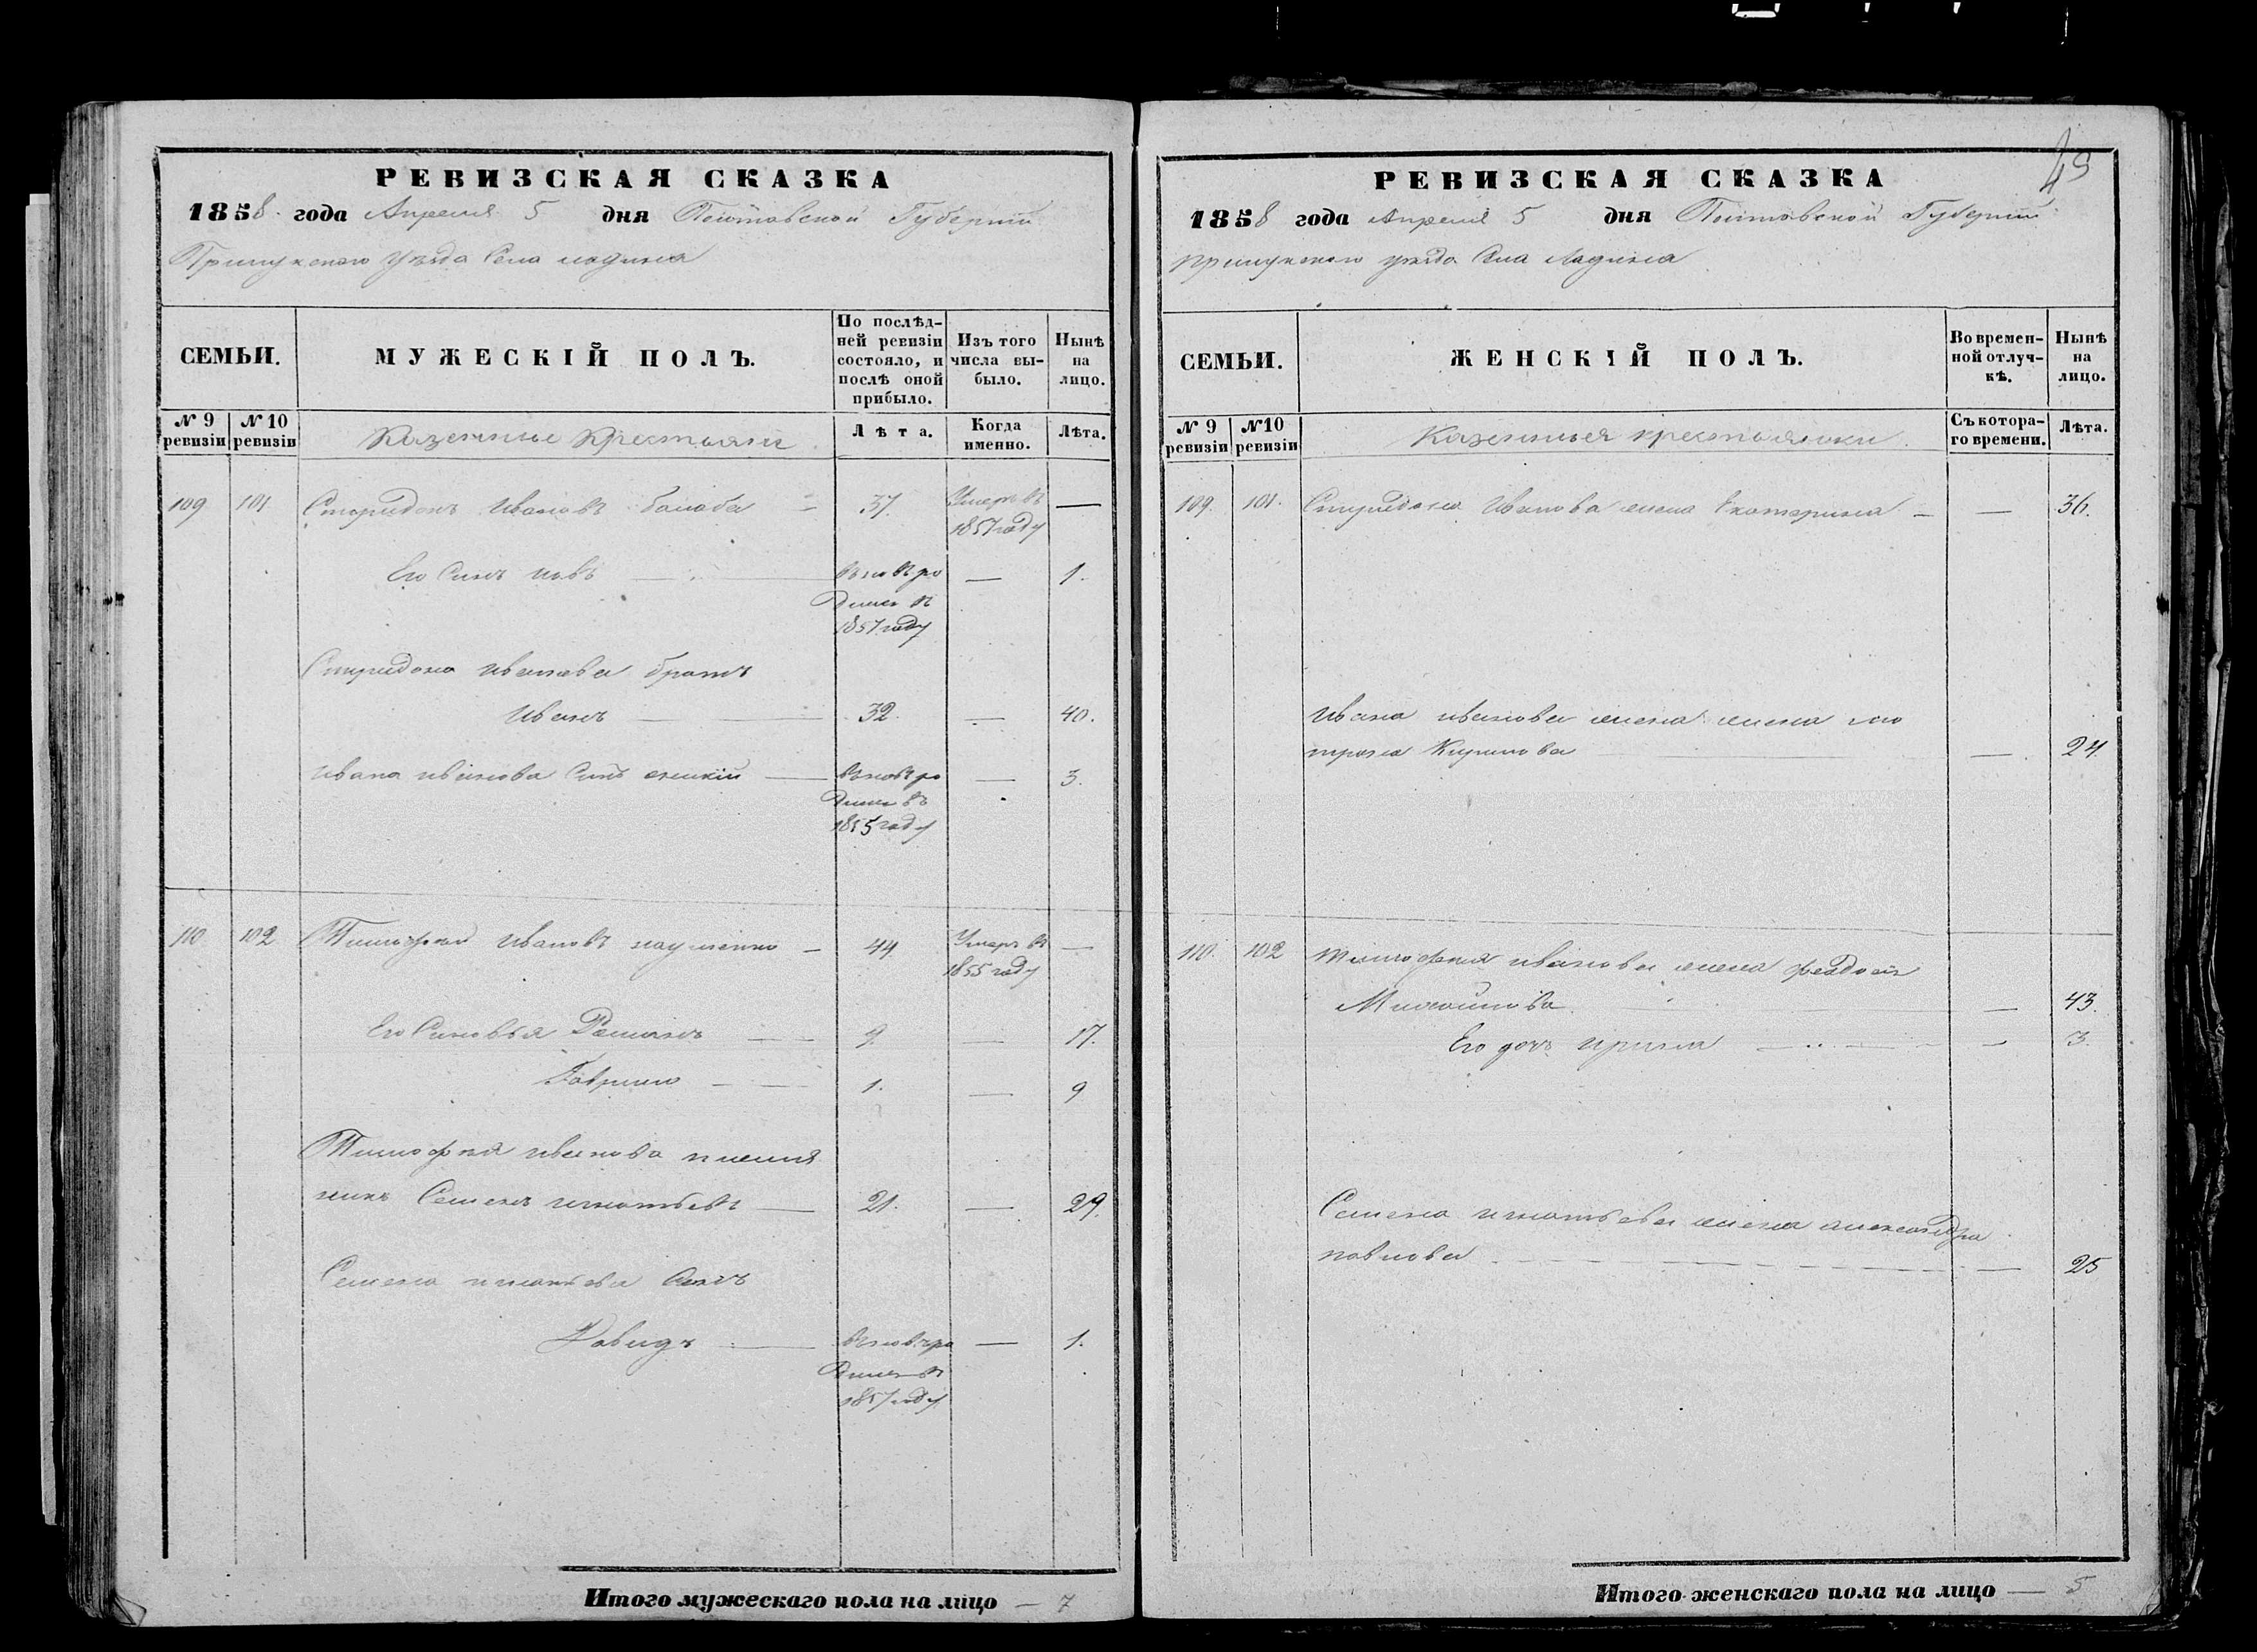 49
РЕВИЗСКАЯ СКАЗКА
1858 года Апреля 5 дня Полтавской Губернiи
Прилукского уѣзда Села ладина
СЕМЬИ.
МУЖЕСКIЙ ПОЛЪ.
По послѣд-
ней ревизiи
состояло, и
послѣ оной
прибыло.
Изъ того
числа вы-
было.
Нынѣ
на
лицо.
№ 9
ревизiи
№ 10
ревизiи
Казенные Крестьяне
Лѣта.
Когда
именно.
Лѣта.
109 101 Спиридонъ Ивановъ балаба 37. Умеръ въ —
1857 году
Его Синъ въновъ ро — 1.
дился въ
1857 году
Спиридона иванова братъ
Иванъ — 32. — 40.
Ивана иванова Синъ — въновъ ро — 3.
дился въ
1855 году
110 102 Тимофей Ивановъ науменко — 44 Умеръ въ —
1855 году
Его Синовья Романъ — 9. — 17.
Гаврило — 1. — 9
Тимофея иванова племя
никъ Семенъ игнатьевъ — 21. — 29.
Семена игнатьева Синъ
Давидъ — въновъ ро — 1.
дился въ
1857 году
Итого мужескаго пола на лицо — 7
РЕВИЗСКАЯ СКАЗКА
1858 года Апреля 5 дня Полтавской Губернiи
прилукского уѣзда Села Ладина
СЕМЬИ.
ЖЕНСКIЙ ПОЛЪ.
Во времен-
ной отлуч-
кѣ.
Нынѣ
на
лицо.
№ 9
ревизiи
№ 10
ревизiи
Казенныя крестьянки
Съ котора-
го времени.
Лѣта.
109. 101. Спиридона Иванова жена Екатерина — — 36.
Ивана иванова жена жена
Кирилова — 24.
110. 102 Тимофея иванова жена феодосiя
Михайлова — 43.
Его дочь ирина — — 3.
Семена игнатьева жена александра
павлова — 25
Итого женскаго пола на лицо — 5